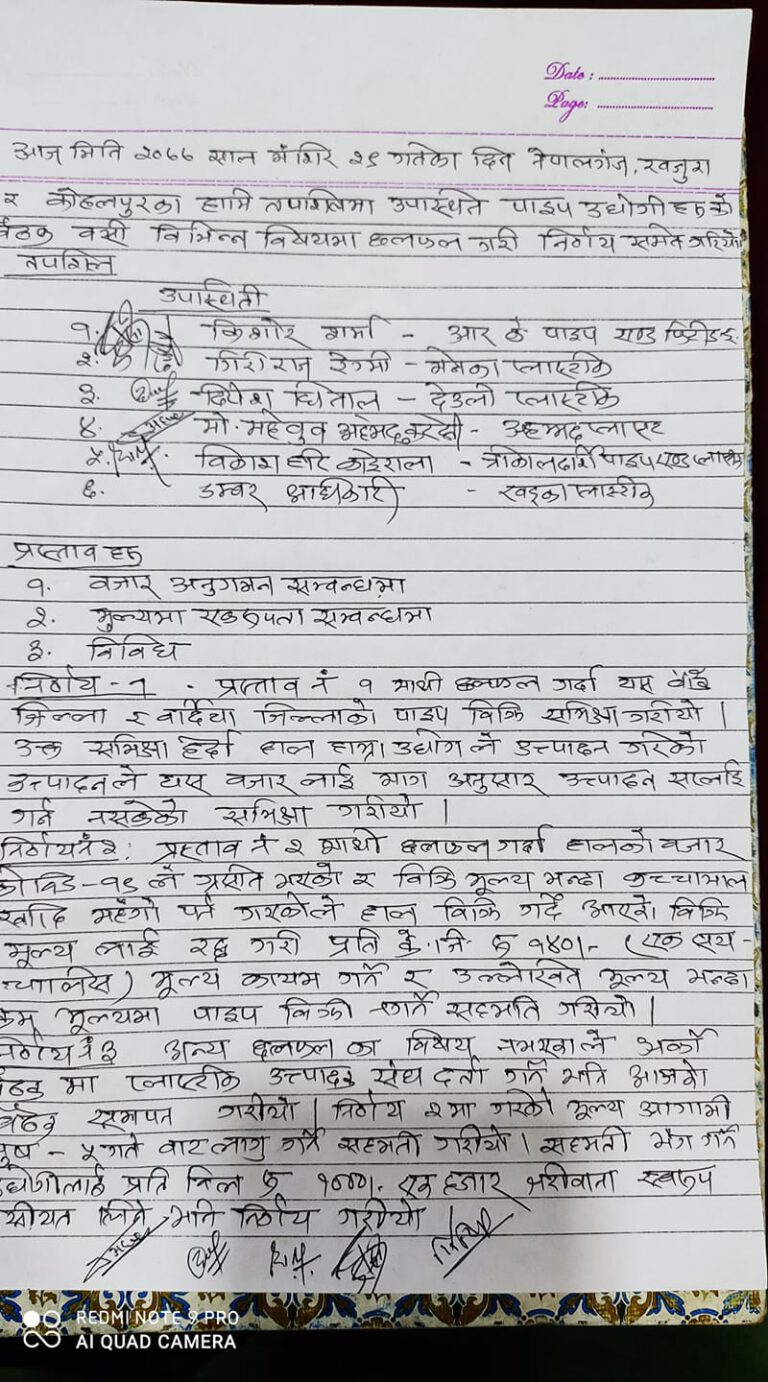 Date :
Page:
आज मिति २०७७ साल मंगिर २९ गतेका दिन नेपालगंज, खजुरा
र कोहलपुरका हामि तपासिलमा उपास्थित पाइप उद्योगीहरुको
बैठक वसी विभिन्न विषयमा छलफल गरी निर्णय समेत गरियो
तपसिल
उपास्थिती
१. किशोर शर्मा - आर के पाइप एण्ड फिटीङ्ग
२. गिरीराज रेग्मी - मेनका प्लास्टीक
३. दिपेश धिताल - देउती प्लास्टीक
४. मो. महेवुव अहेमद - अहमद प्लाष्ट
५. विकाश हरि कोइराला - त्रीकालदर्शी पाइप एण्ड प्लाष्टिक
६. डम्वर अधिकारी - खड्का प्लास्टीक
प्रस्ताव हरु
१. वजार अनुगमन सम्वन्धमा
२. मुल्यमा एकरुपता सम्वन्धमा
३. विविध
निर्णय - १ . प्रस्ताव नं १ माथी छलफल गर्दा यस बाँके
जिल्ला र वर्दिया जिल्लाको पाइप विक्रि समिक्षा गरीयो |
उक्त समिक्षा हेर्दा हाल हाम्रा उद्योग ले उत्पादन गरेको
उत्पादनले यस वजार लाई माग अनुसार उत्पादन सप्लाई
गर्न नसकेको समिक्षा गरीयो |
निर्णय नं २: प्रस्ताव नं २ माथी छलफल गर्दा हालको वजार
कोविड-१९ ले ग्रसीत भएको र विक्रि मूल्य भन्दा कच्चामाल
खरिद महँगो पर्न गएकोले हाल विक्रि गर्दै आएको विक्रि
मूल्य लाई रद्द गरी प्रति के.जि रु १४०/- (एक सय -
चालिस) मूल्य कायम गर्ने र उल्लेखित मूल्य भन्दा
कम मूल्यमा पाइप विक्री नगर्ने सहमति गरीयो |
निर्णय नं ३ अन्य छलफल का विषय नभएकाले अर्को
बैठक मा प्लास्टीक उत्पादक संघ दर्ता गर्ने भनि आजको
बैठक समापन गरीयो | निर्णय २ मा गरेको मूल्य आगामी
पुष - ५ गते वाट लागु गर्ने सहमती गरीयो | सहमती भंग गर्ने
उद्योगीलाई प्रति किलो रु १०००/- एक हजार जरीवाना स्वरुप
लिने भनि निर्णय गरीयो |
REDMI NOTE 9 PRO
AI QUAD CAMERA